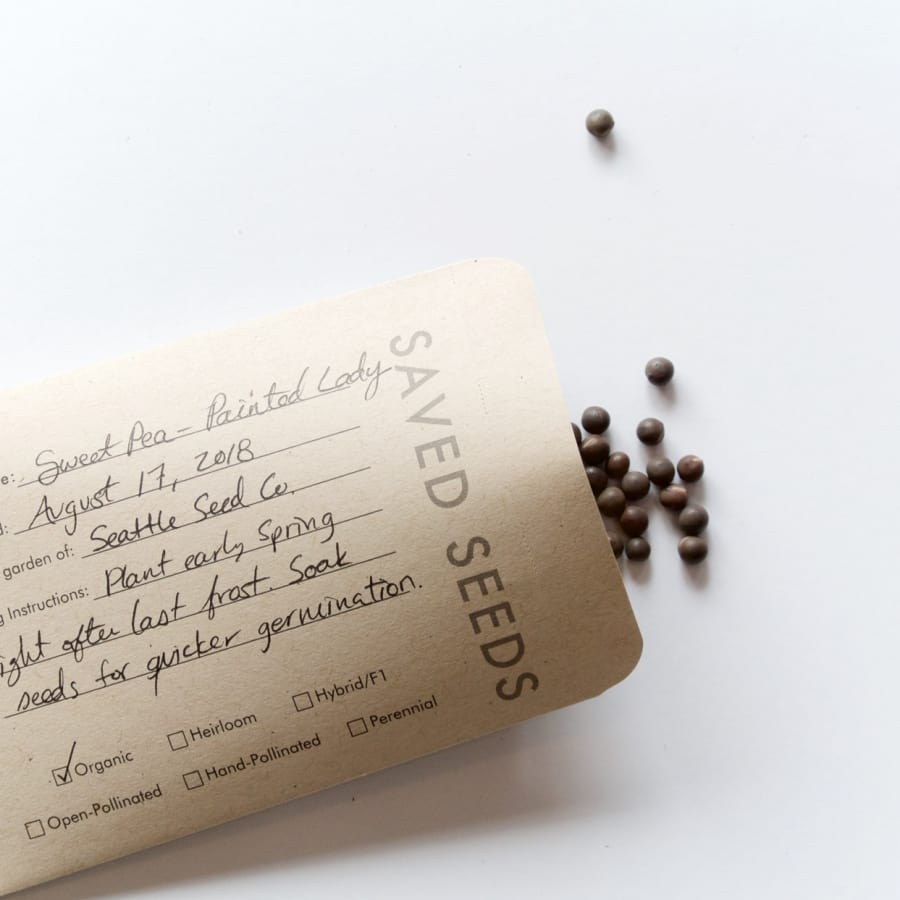 SAVED SEEDS
e: Sweet Pea - Painted Lady
d: August 17, 2018
garden of: Seattle Seed Co.
g Instructions: Plant early Spring
ight after last frost. Soak
seeds for quicker germination.
Organic Heirloom Hybrid/F1
Open-Pollinated Hand-Pollinated Perennial